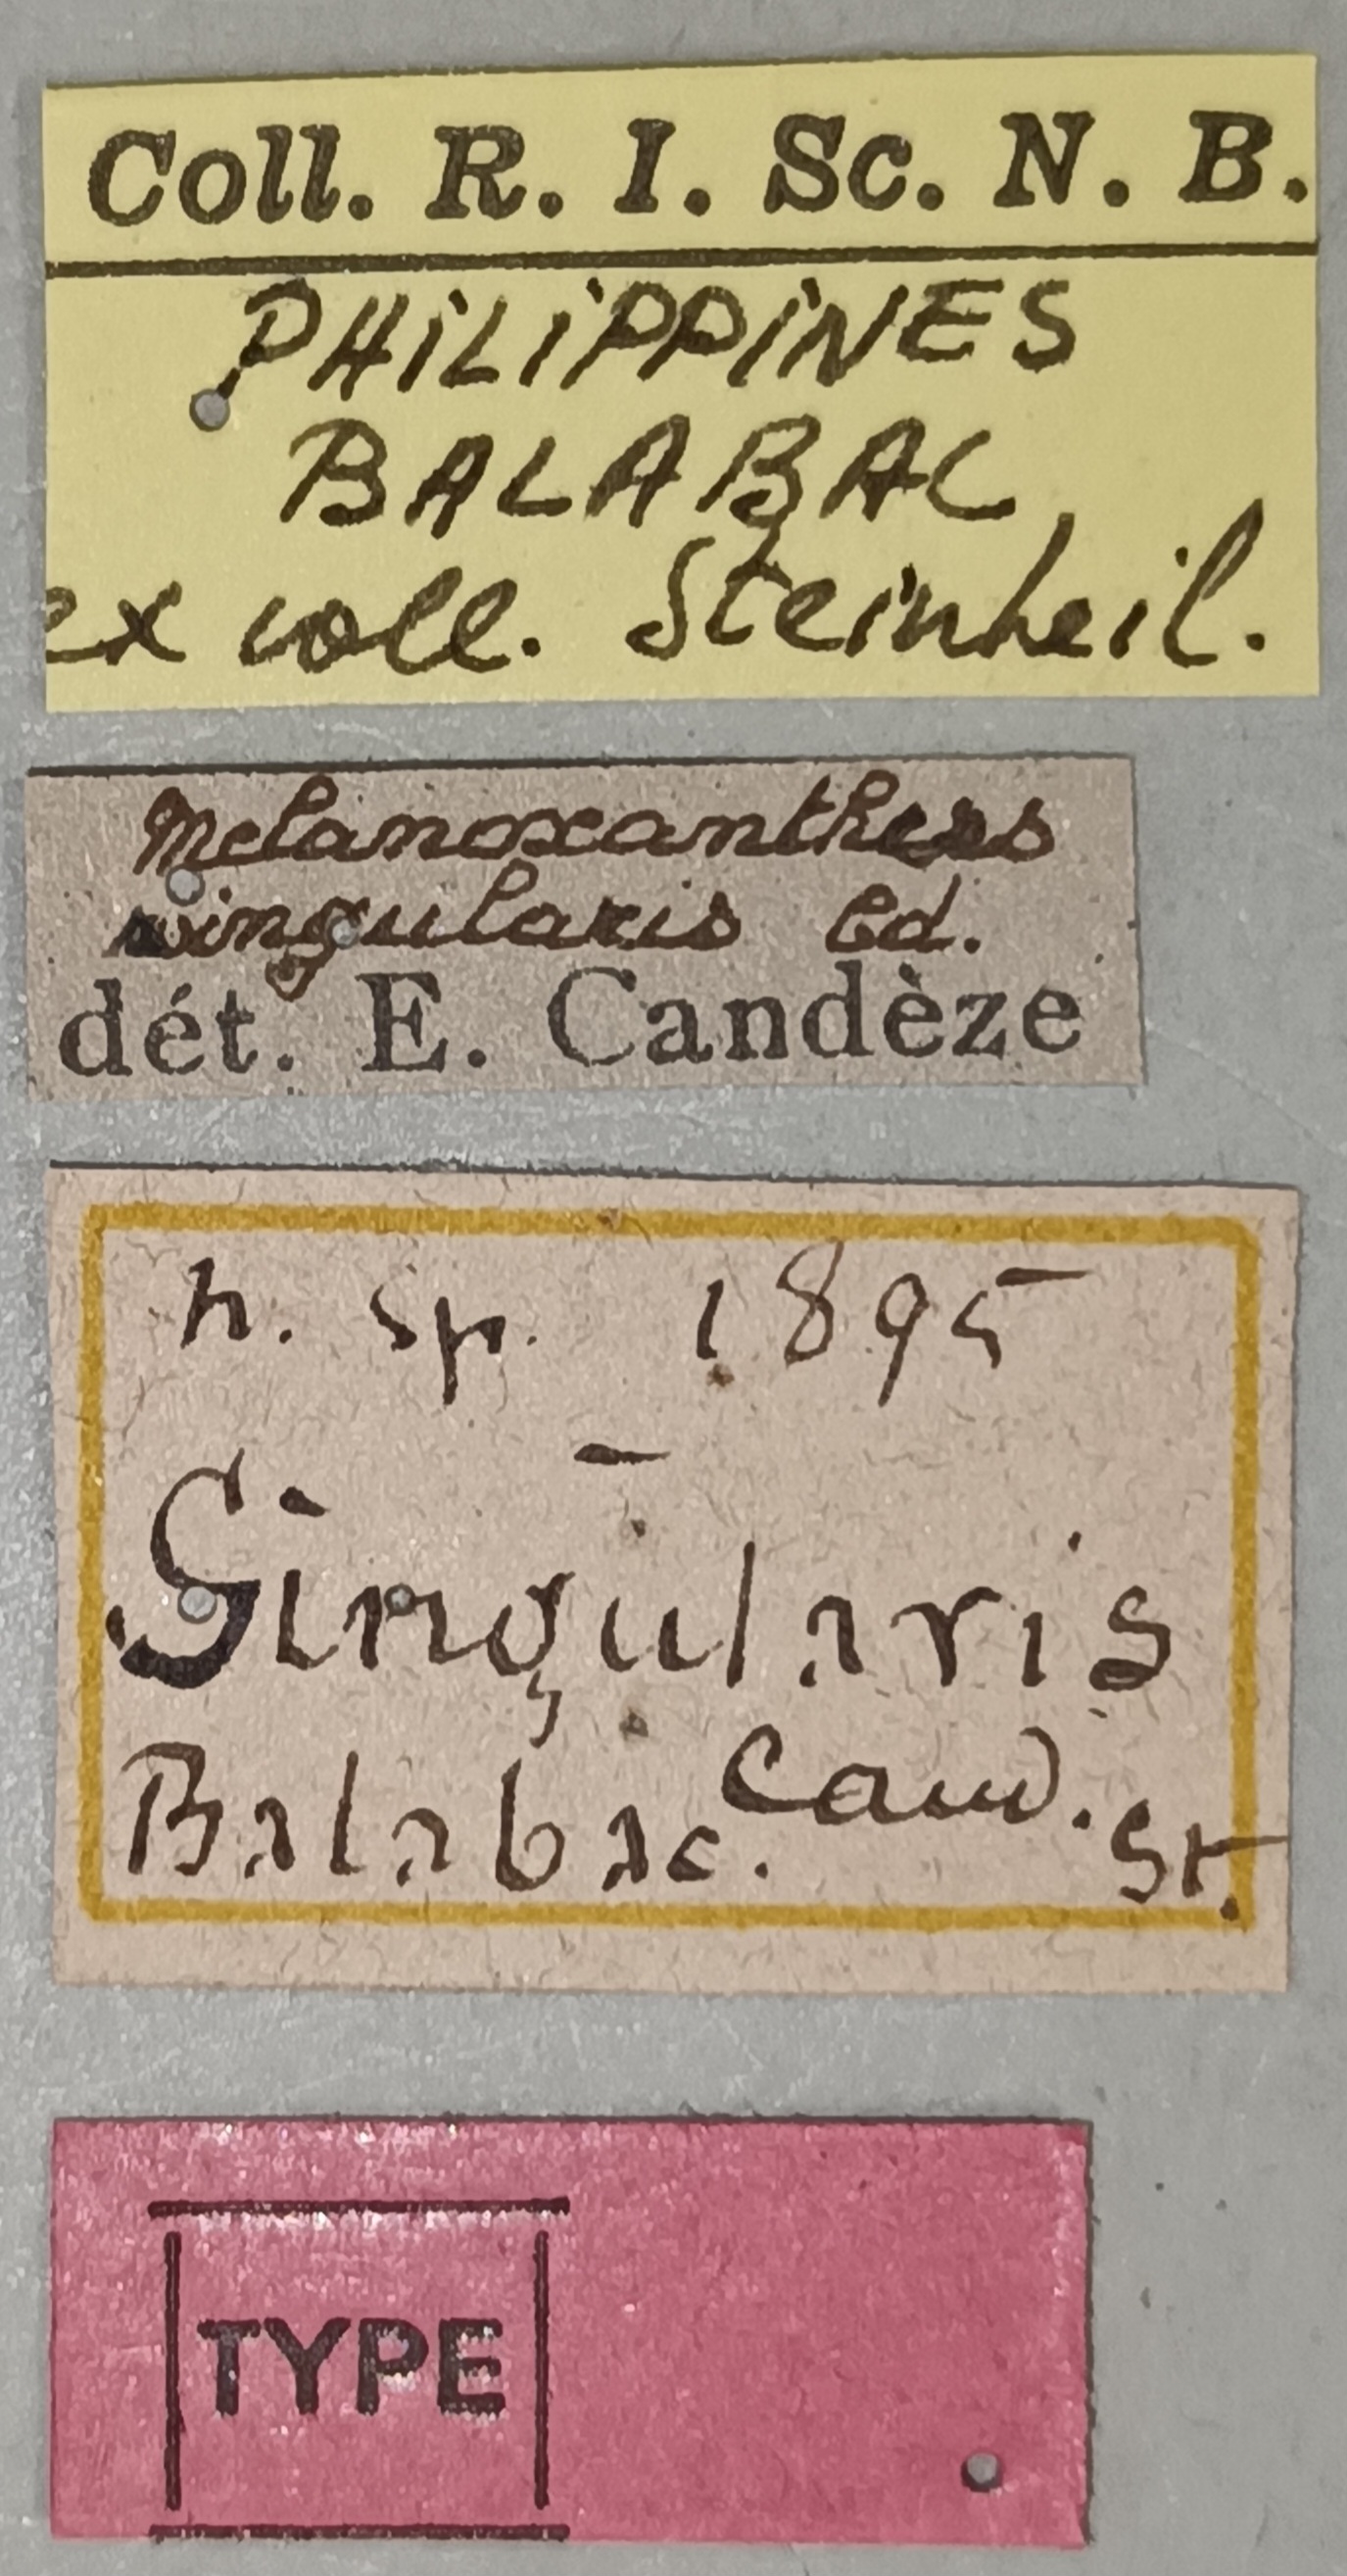 Coll. R. I. Sc. N. B.
PHILIPPINES
BALABAC
ex coll. Steinheil.
Melanoxanthus
singularis Cd.
dét. E. Candèze
n. sp. 1895
Singularis
Cand.
Balabac. St.
TYPE